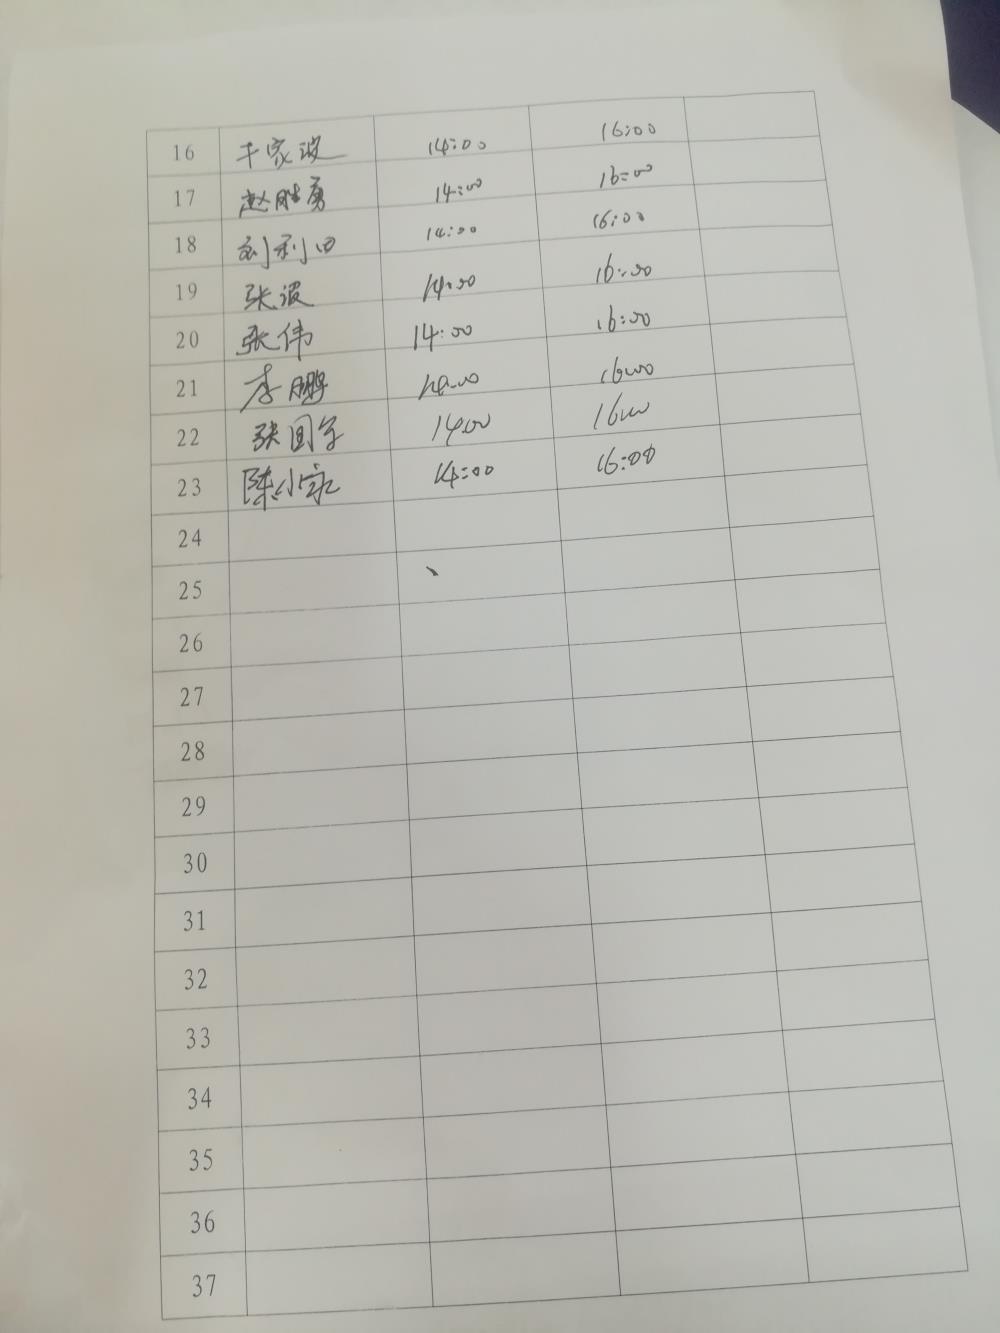 16 千家波 14:00 16:00
17 赵胜勇 14:00 16:00
18 刘利田 14:00 16:00
19 张波 14:00 16:00
20 张伟 14:00 16:00
21 李鹏 14:00 16:00
22 张国军 14:00 16:00
23 陈小家 14:00 16:00
24
25
26
27
28
29
30
31
32
33
34
35
36
37